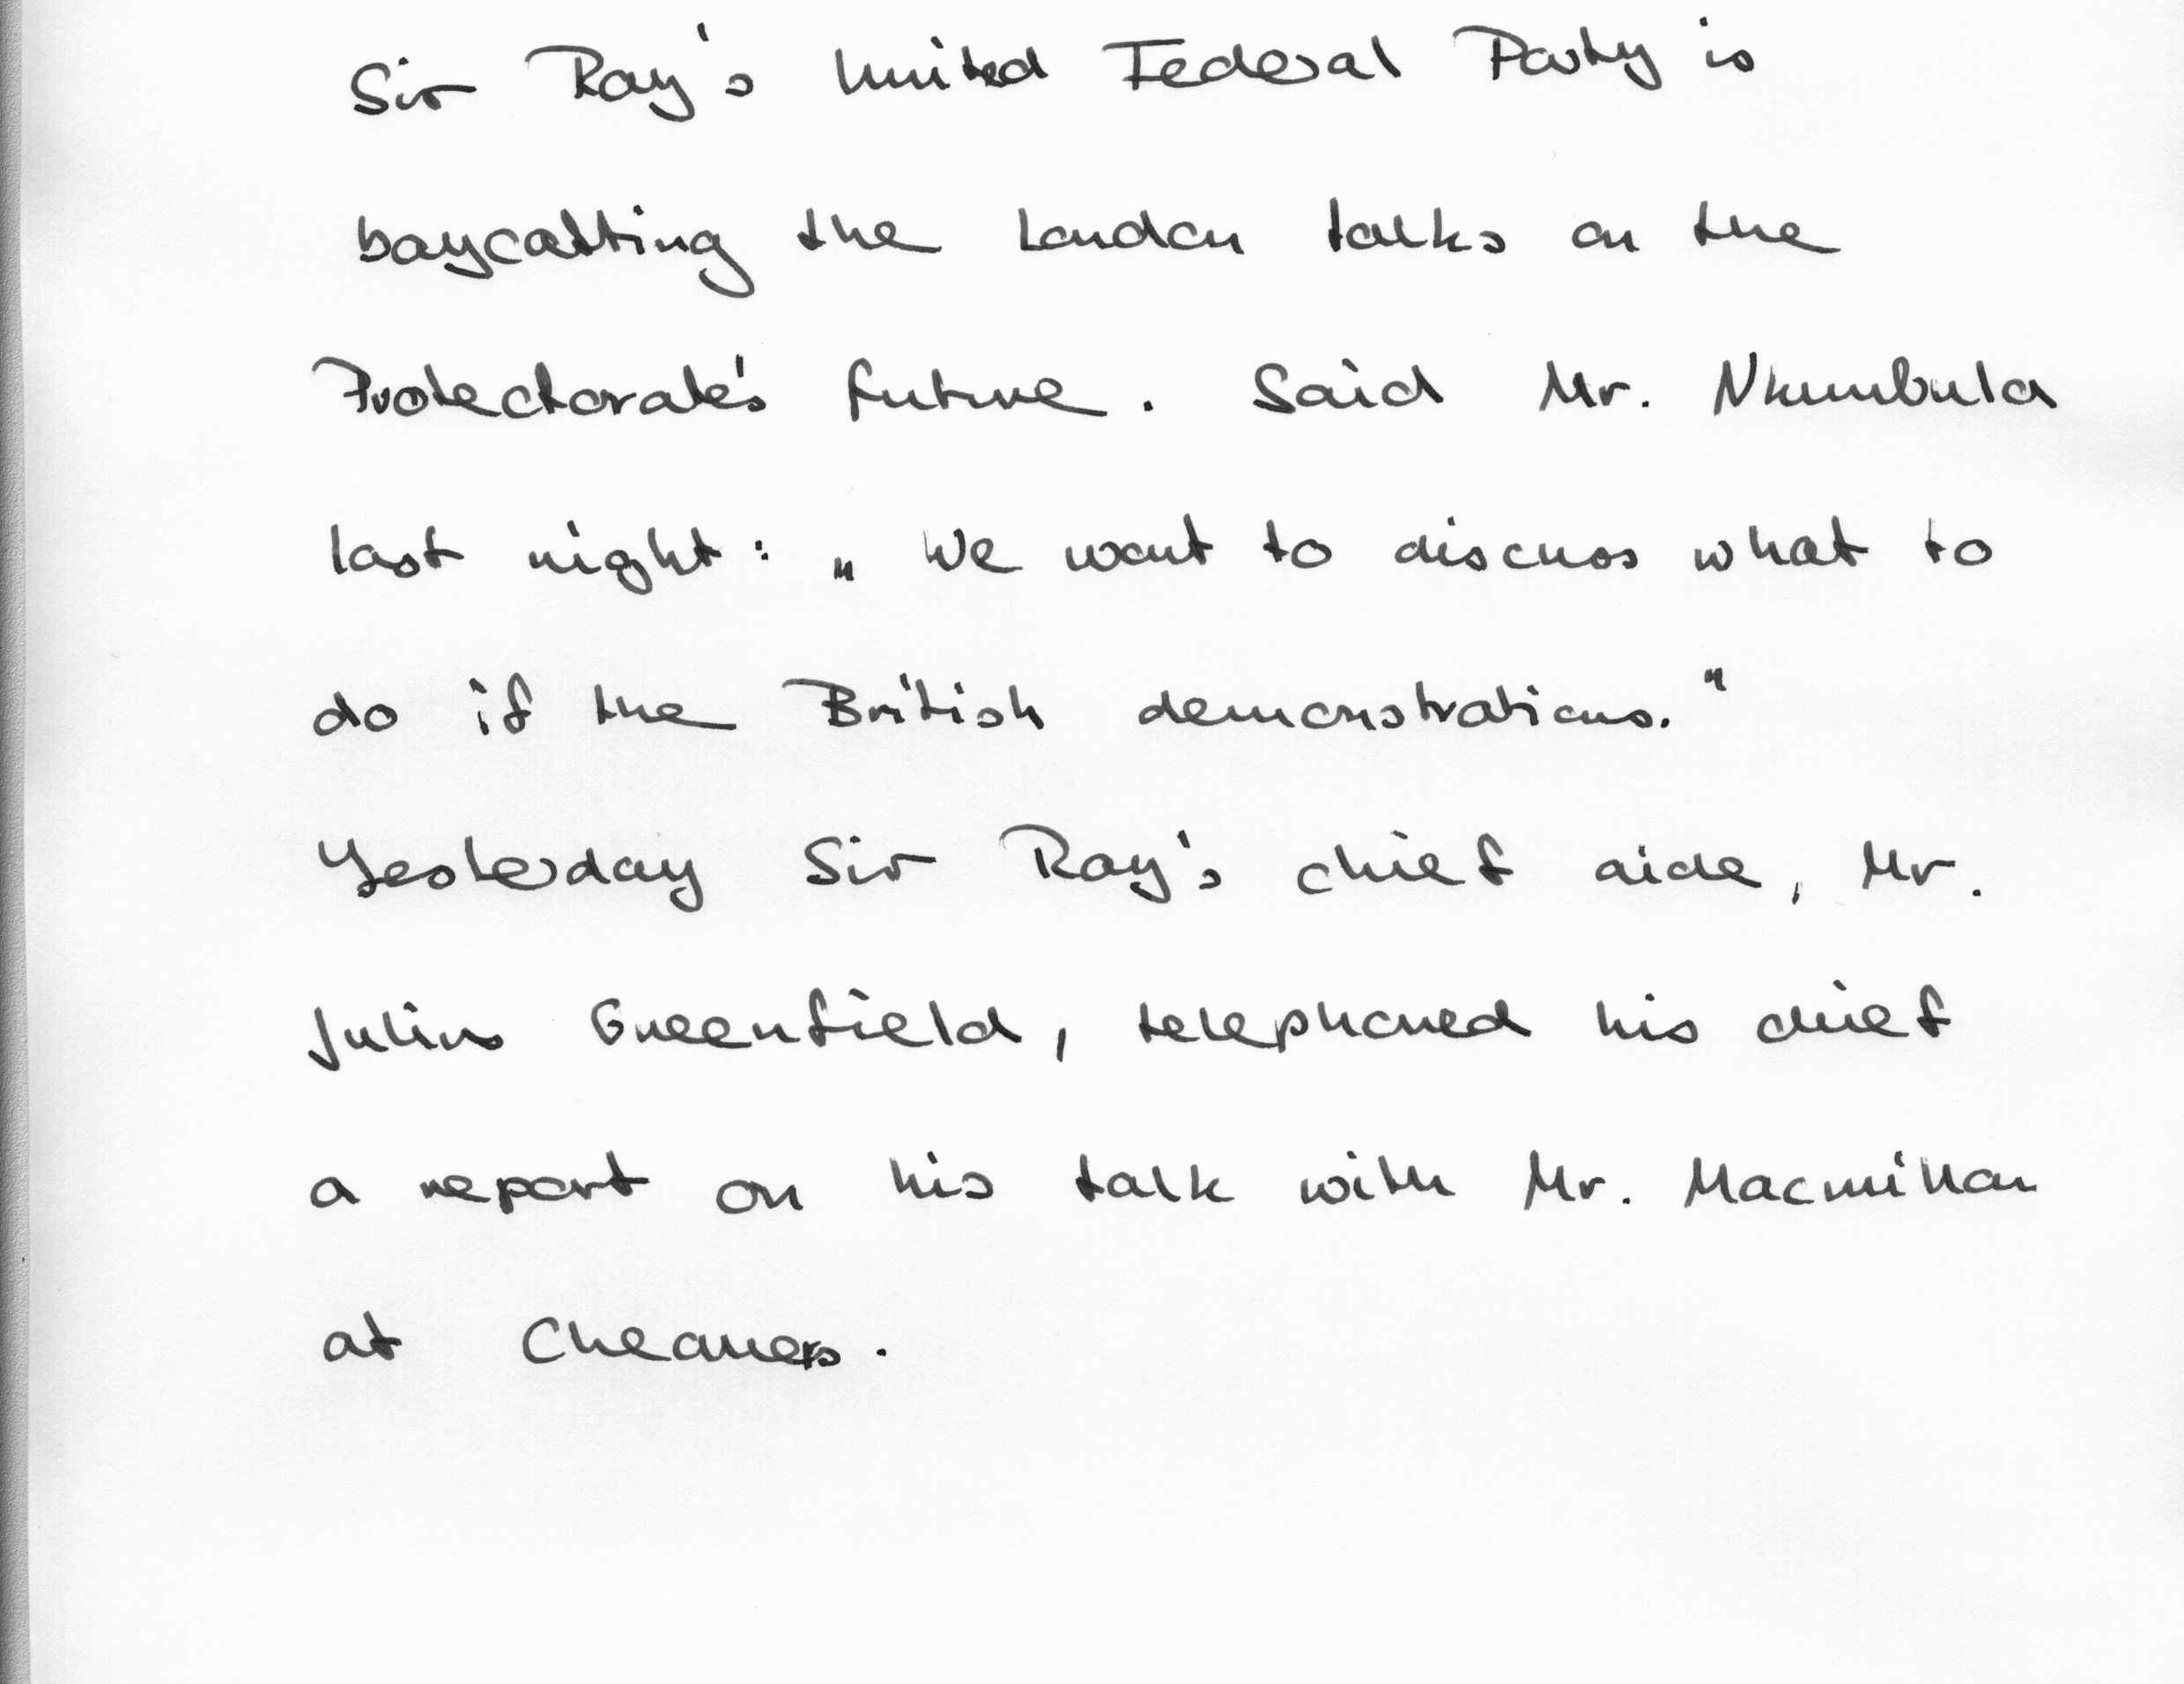 Sir Roy's United Federal Party is
boycotting the London talks on the
Protectorate's future. Said Mr. Nkumbula
last night: „We want to discuss what to
do if the British demonstrations."
Yesterday Sir Roy's chief aide, Mr.
Julius Greenfield, telephoned his chief
a report on his talk with Mr. Macmillan
at